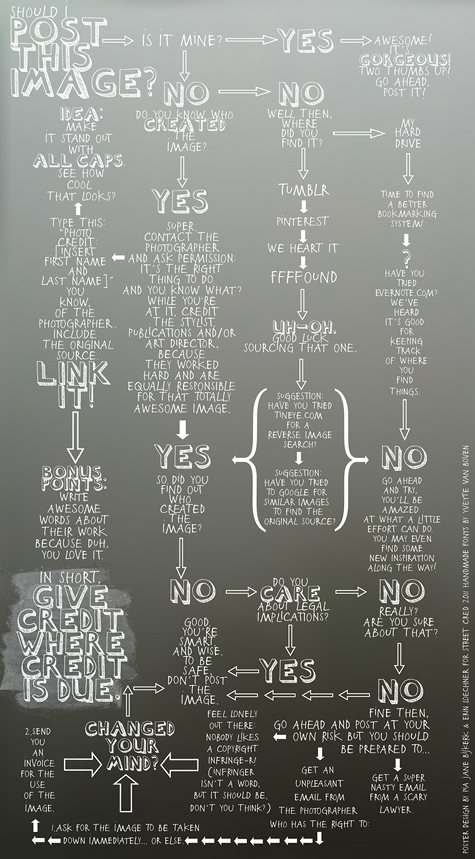 SHOULD I
POST
THIS
IMAGE?
IS IT MINE?
YES
AWESOME!
IT'S
GORGEOUS!
TWO THUMBS UP!
GO AHEAD,
POST IT!
NO
DO YOU KNOW WHO
CREATED
THE
IMAGE?
NO
WELL THEN,
WHERE
DID YOU
FIND IT?
MY
HARD
DRIVE
TIME TO FIND
A BETTER
BOOKMARKING
SYSTEM!
?
HAVE YOU
TRIED
EVERNOTE.COM?
WE'VE
HEARD
IT'S GOOD
FOR
KEEPING
TRACK
OF WHERE
YOU
FIND
THINGS.
TUMBLR
PINTEREST
WE HEART IT
FFFFOUND
UH-OH.
GOOD LUCK
SOURCING THAT ONE.
SUGGESTION:
HAVE YOU TRIED
TINEYE.COM
FOR A
REVERSE IMAGE
SEARCH?
SUGGESTION:
HAVE YOU TRIED
TO GOOGLE FOR
SIMILAR IMAGES
TO FIND THE
ORIGINAL SOURCE?
YES
SUPER.
CONTACT THE
PHOTOGRAPHER
AND ASK PERMISSION:
IT'S THE RIGHT
THING TO DO
AND YOU KNOW WHAT?
WHILE YOU'RE
AT IT, CREDIT
THE STYLIST,
PUBLICATIONS AND/OR
ART DIRECTOR,
BECAUSE
THEY WORKED
HARD AND ARE
EQUALLY RESPONSIBLE
FOR THAT TOTALLY
AWESOME IMAGE.
IDEA:
MAKE
IT STAND OUT
WITH
ALL CAPS.
SEE HOW
COOL
THAT LOOKS?
TYPE THIS:
"PHOTO
CREDIT:
[INSERT
FIRST NAME
AND
LAST NAME]"
YOU
KNOW,
OF THE
PHOTOGRAPHER.
INCLUDE
THE ORIGINAL
SOURCE.
LINK
IT!
BONUS
POINTS:
WRITE
AWESOME
WORDS ABOUT
THEIR WORK
BECAUSE DUH,
YOU LOVE IT.
IN SHORT,
GIVE
CREDIT
WHERE
CREDIT
IS DUE.
YES
SO DID YOU
FIND OUT
WHO
CREATED
THE
IMAGE?
NO
GO AHEAD
AND TRY,
YOU'LL BE
AMAZED
AT WHAT A LITTLE
EFFORT CAN DO.
YOU MAY EVEN
FIND SOME
NEW INSPIRATION
ALONG THE WAY!
NO
DO YOU
CARE
ABOUT LEGAL
IMPLICATIONS?
NO
REALLY?
ARE YOU SURE
ABOUT THAT?
GOOD
YOU'RE
SMART
AND WISE.
TO BE
SAFE,
DON'T POST
THE
IMAGE.
YES
NO
FINE THEN,
GO AHEAD AND POST AT YOUR
OWN RISK, BUT YOU SHOULD
BE PREPARED TO...
FEEL LONELY
OUT THERE:
NOBODY LIKES
A COPYRIGHT
INFRINGE-R/
(INFRINGER
ISN'T A WORD,
BUT IT SHOULD BE,
DON'T YOU THINK?)
GET AN
UNPLEASANT
EMAIL FROM
THE PHOTOGRAPHER
WHO HAS THE RIGHT TO:
GET A SUPER
NASTY EMAIL
FROM A SCARY
LAWYER.
CHANGED
YOUR
MIND?
2.SEND
YOU
AN
INVOICE
FOR THE
USE
OF THE
IMAGE.
1.ASK FOR THE IMAGE TO BE TAKEN
DOWN IMMEDIATELY... OR ELSE.
POSTER DESIGN BY PIA JANE BIJKERK & ERIN LOECHNER FOR STREET CRED 2011 HANDMADE FONTS BY YVETTE VAN BOVEN